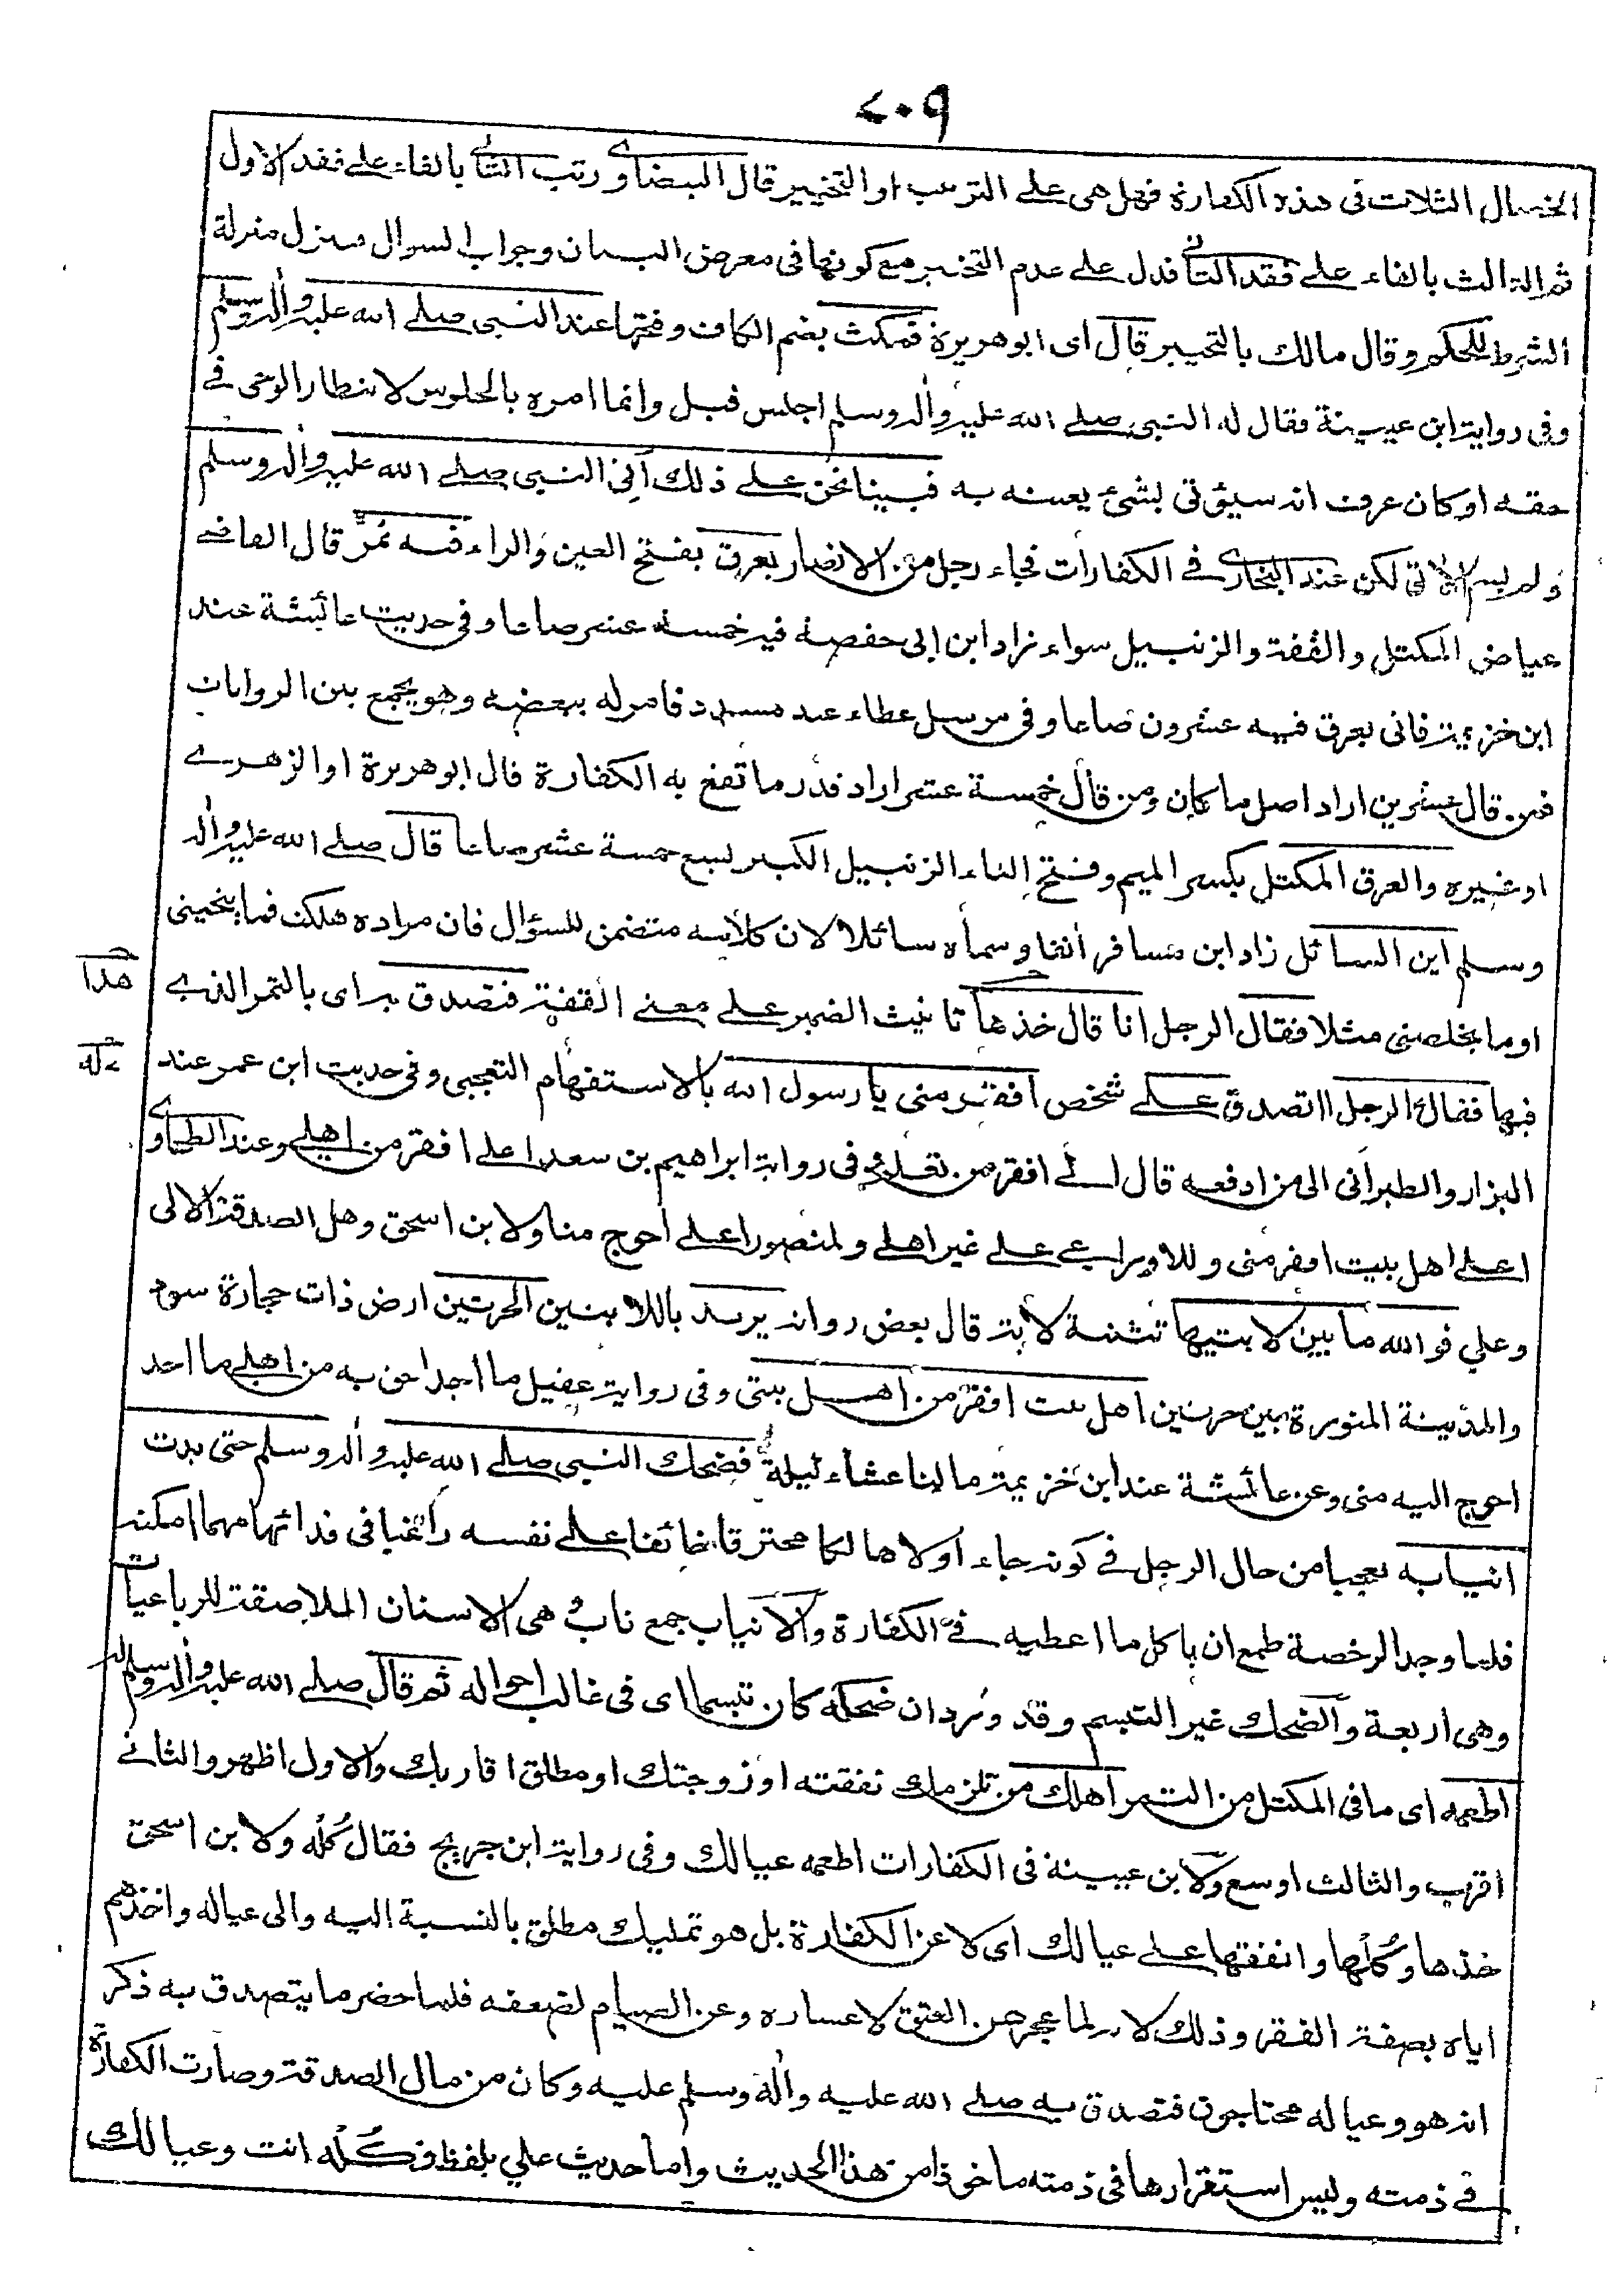 ٧٠٩
الخصال الثلاث فى هذه الكفارة فهل هى على الترتيب او التخيير قال البيضاوى رتب الثانى بالفاء على فقد الاول
ثم الثالث بالفاء على فقد الثانى فدل على عدم التخيير مع كونها فى معرض البيان وجواب السوال منزل منزلة
الشرط للحكم وقال مالك بالتخيير قال اى ابو هريرة فمكث بضم الكاف وفتحها عند النبى صلى الله عليه واله وسلم
وفى رواية ابن عيينة فقال له النبى صلى الله عليه واله وسلم اجلس قيل وانما امره بالجلوس لانتظار الوحى فى
حقه او كان عرف انه سيؤتى بشئ يعينه به فبينا نحن على ذلك أُتِىَ النبى صلى الله عليه واله وسلم
ولم يسم الاٰتى لكن عند البخارى فى الكفارات فجاء رجل من الانصار بعرق بفتح العين والراء فيه تمر قال القاضى
عياض المكتل والقفة والزنبيل سواء زاد ابن ابى حفصة فيه خمسة عشر صاعا وفى حديث عائشة عند
ابن خزيمة فاتى بعرق فيه عشرون صاعا وفى مرسل عطاء عند مسدد فامر له ببعضه وهو يجمع بين الروايات
فمن قال عشرين اراد اصل ما كان ومن قال خمسة عشر اراد قدر ما تقع به الكفارة قال ابو هريرة او الزهرى
او غيره والعرق المكتل بكسر الميم وفتح التاء الزنبيل الكبير يسع خمسة عشر صاعا قال صلى الله عليه واله
وسلم اين السائل زاد ابن مسافر اٰنفا وسماه سائلا لان كلامه متضمن للسؤال فان مراده هلكت فما ينجينى
او ما يخلصنى مثلا فقال الرجل انا قال خذها تانيث الضمير على معنى القفة فتصدق به اى بالتمر الذى
هذا
فيها فقال الرجل ااتصدق على شخص افقر منى يا رسول الله بالاستفهام التعجبى وفى حديث ابن عمر عند
البزار والطبرانى الى من ادفعه قال الى افقر من تعلم وفى رواية ابراهيم بن سعد اعلى افقر من اهلى وعند الطحاوى
اعلى اهل بيت افقر منى وللاوزاعى على غير اهلى ولمنصور اعلى احوج منا ولابن اسحق وهل الصدقة الا لى
وعلي فو الله ما بين لابتيها تثنية لابة قال بعض رواته يريد باللابتين الحرتين ارض ذات حجارة سود
والمدينة المنورة بين حرتين اهل بيت افقر من اهل بيتى وفى رواية عقيل ما اجد احق به من اهلى ما احد
احوج اليه منى وعن عائشة عند ابن خزيمة ما لنا عشاء ليلة فضحك النبى صلى الله عليه واله وسلم حتى بدت
انيابه تعجبا من حال الرجل فى كونه جاء اولا هالكا محترقا خائفا على نفسه راغبا فى فدائها مهما امكنه
فلما وجد الرخصة طمع ان ياكل ما اعطيه فى الكفارة والانياب جمع ناب هى الاسنان الملاصقة للرباعيات
وهى اربعة والضحك غير التبسم وقد ورد ان ضحكه كان تبسما اى فى غالب احواله ثم قال صلى الله عليه واله وسلم له
اطعمه اى ما فى المكتل من التمر اهلك من تلزمك نفقته او زوجتك او مطلق اقاربك والاول اظهر والثانى
اقرب والثالث اوسع ولابن عيينة فى الكفارات اطعمه عيالك وفى رواية ابن جريج فقال كُلْه ولابن اسحق
خذها وكُلْها وانفقها على عيالك اى لا عن الكفارة بل هو تمليك مطلق بالنسبة اليه والى عياله واخذهم
اياه بصفة الفقر وذلك لانه لما عجز عن العتق لاعساره وعن الصيام لضعفه فلما حضر ما يتصدق به ذكر
انه هو وعياله محتاجون فتصدق به صلى الله عليه واله وسلم عليه وكان من مال الصدقة وصارت الكفارة
فى ذمته وليس استقرارها فى ذمته ماخوذا من هذا الحديث واما حديث علي بلفظ فكُلْه انت وعيالك